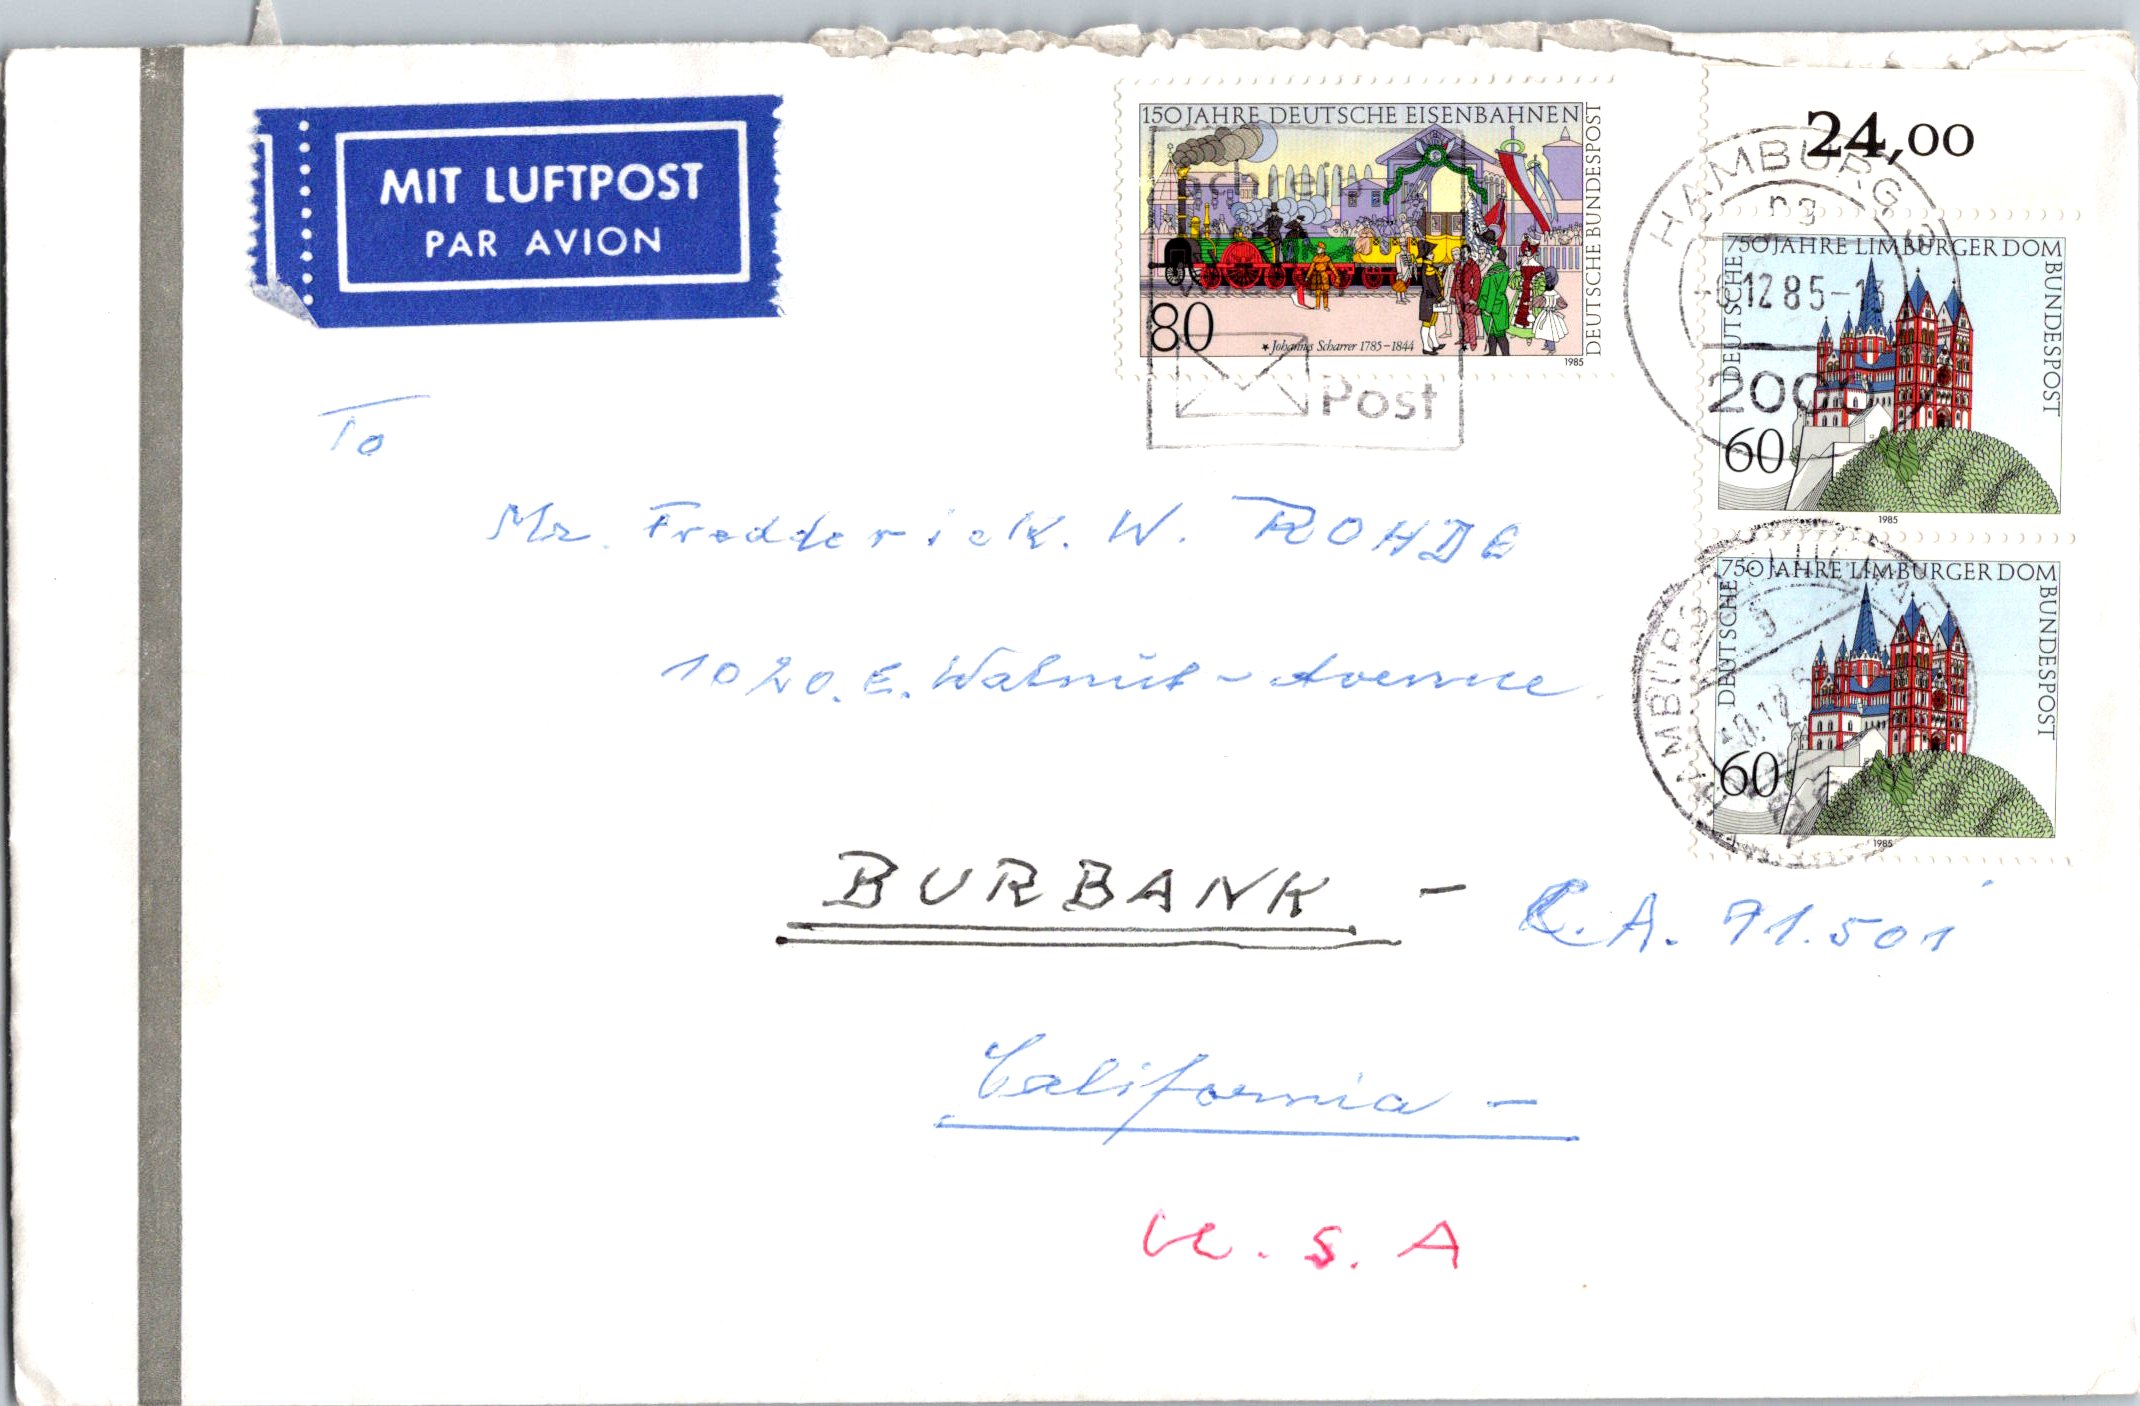 MIT LUFTPOST
PAR AVION
150 JAHRE DEUTSCHE EISENBAHNEN
DEUTSCHE BUNDESPOST
80
* Johannes Scharrer 1785–1844 *
1985
Post
24,00
HAMBURG
ng
12 85-13
200
750 JAHRE LIMBURGER DOM
DEUTSCHE
BUNDESPOST
60
1985
750 JAHRE LIMBURGER DOM
DEUTSCHE
BUNDESPOST
60
1985
HAMBURG
To
Mr. Fredderick. W. ROHDE
1020. E. Walnut - Avenue.
BURBANK - C.A. 91.501
California -
U. S. A